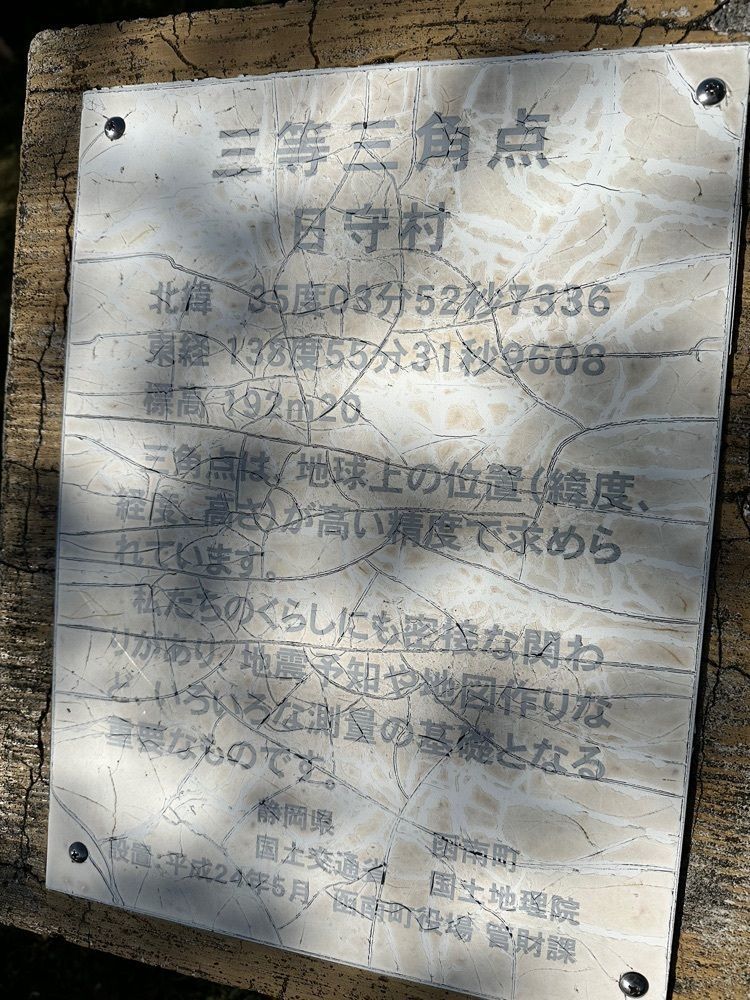 三等三角点
日守村
北緯 35度03分52秒7336
東経 138度55分31秒9608
標高 192m20
三角点は、地球上の位置(緯度、
経度、高さ)が高い精度で求めら
れています。
私たちのくらしにも密接な関わ
りがあり、地震予知や地図作りな
ど、いろいろな測量の基礎となる
重要なものです。
静岡県 函南町
国土交通省 国土地理院
設置:平成24年5月 函南町役場 管財課